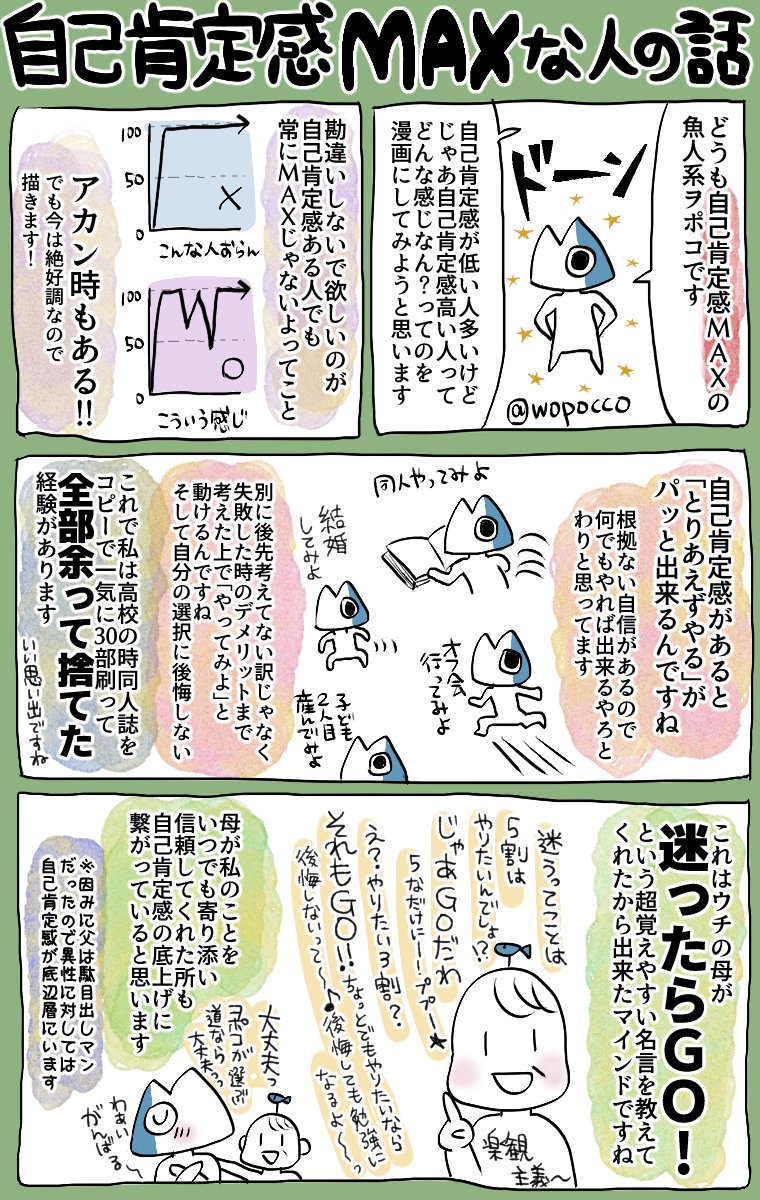 自己肯定感MAXな人の話
どうも自己肯定感MAXの
魚人系ヲポコです
ドーン
自己肯定感が低い人多いけど
じゃあ自己肯定感高い人って
どんな感じなん？ってのを
漫画にしてみようと思います
@wopocco
勘違いしないで欲しいのが
自己肯定感ある人でも
常にMAXじゃないよってこと
100
50
0
こんな人おらん
100
50
0
こういう感じ
アカン時もある!!
でも今は絶好調なので
描きます！
自己肯定感があると
「とりあえずやる」が
パッと出来るんですね
根拠ない自信があるので
何でもやれば出来るやろと
わりと思ってます
同人やってみよ
オフ会
行ってみよ
結婚
してみよ
子ども
2人目
産んでみよ
別に後先考えてない訳じゃなく
失敗した時のデメリットまで
考えた上で「やってみよ」と
動けるんですね
そして自分の選択に後悔しない
これで私は高校の時同人誌を
コピーで一気に30部刷って
全部余って捨てた
経験があります
いい思い出ですね
これはウチの母が
迷ったらGO！
という超覚えやすい名言を教えて
くれたから出来たマインドですね
迷うってことは
5割は
やりたいんでしょ!?
じゃあGOだわ
5なだけにー！ププー★
え？やりたい3割？
それもGO!!
ちょっとでもやりたいなら
後悔しないって〜♪
後悔しても勉強に
なるよ〜〜っ
楽観
主義〜
母が私のことを
いつでも寄り添い
信頼してくれた所も
自己肯定感の底上げに
繋がっていると思います
大丈夫っ
ヲポコが選ぶ
道なら
大丈夫っっ
わぁい
がんばる〜
※因みに父は駄目出しマン
だったので異性に対しては
自己肯定感が底辺層にいます